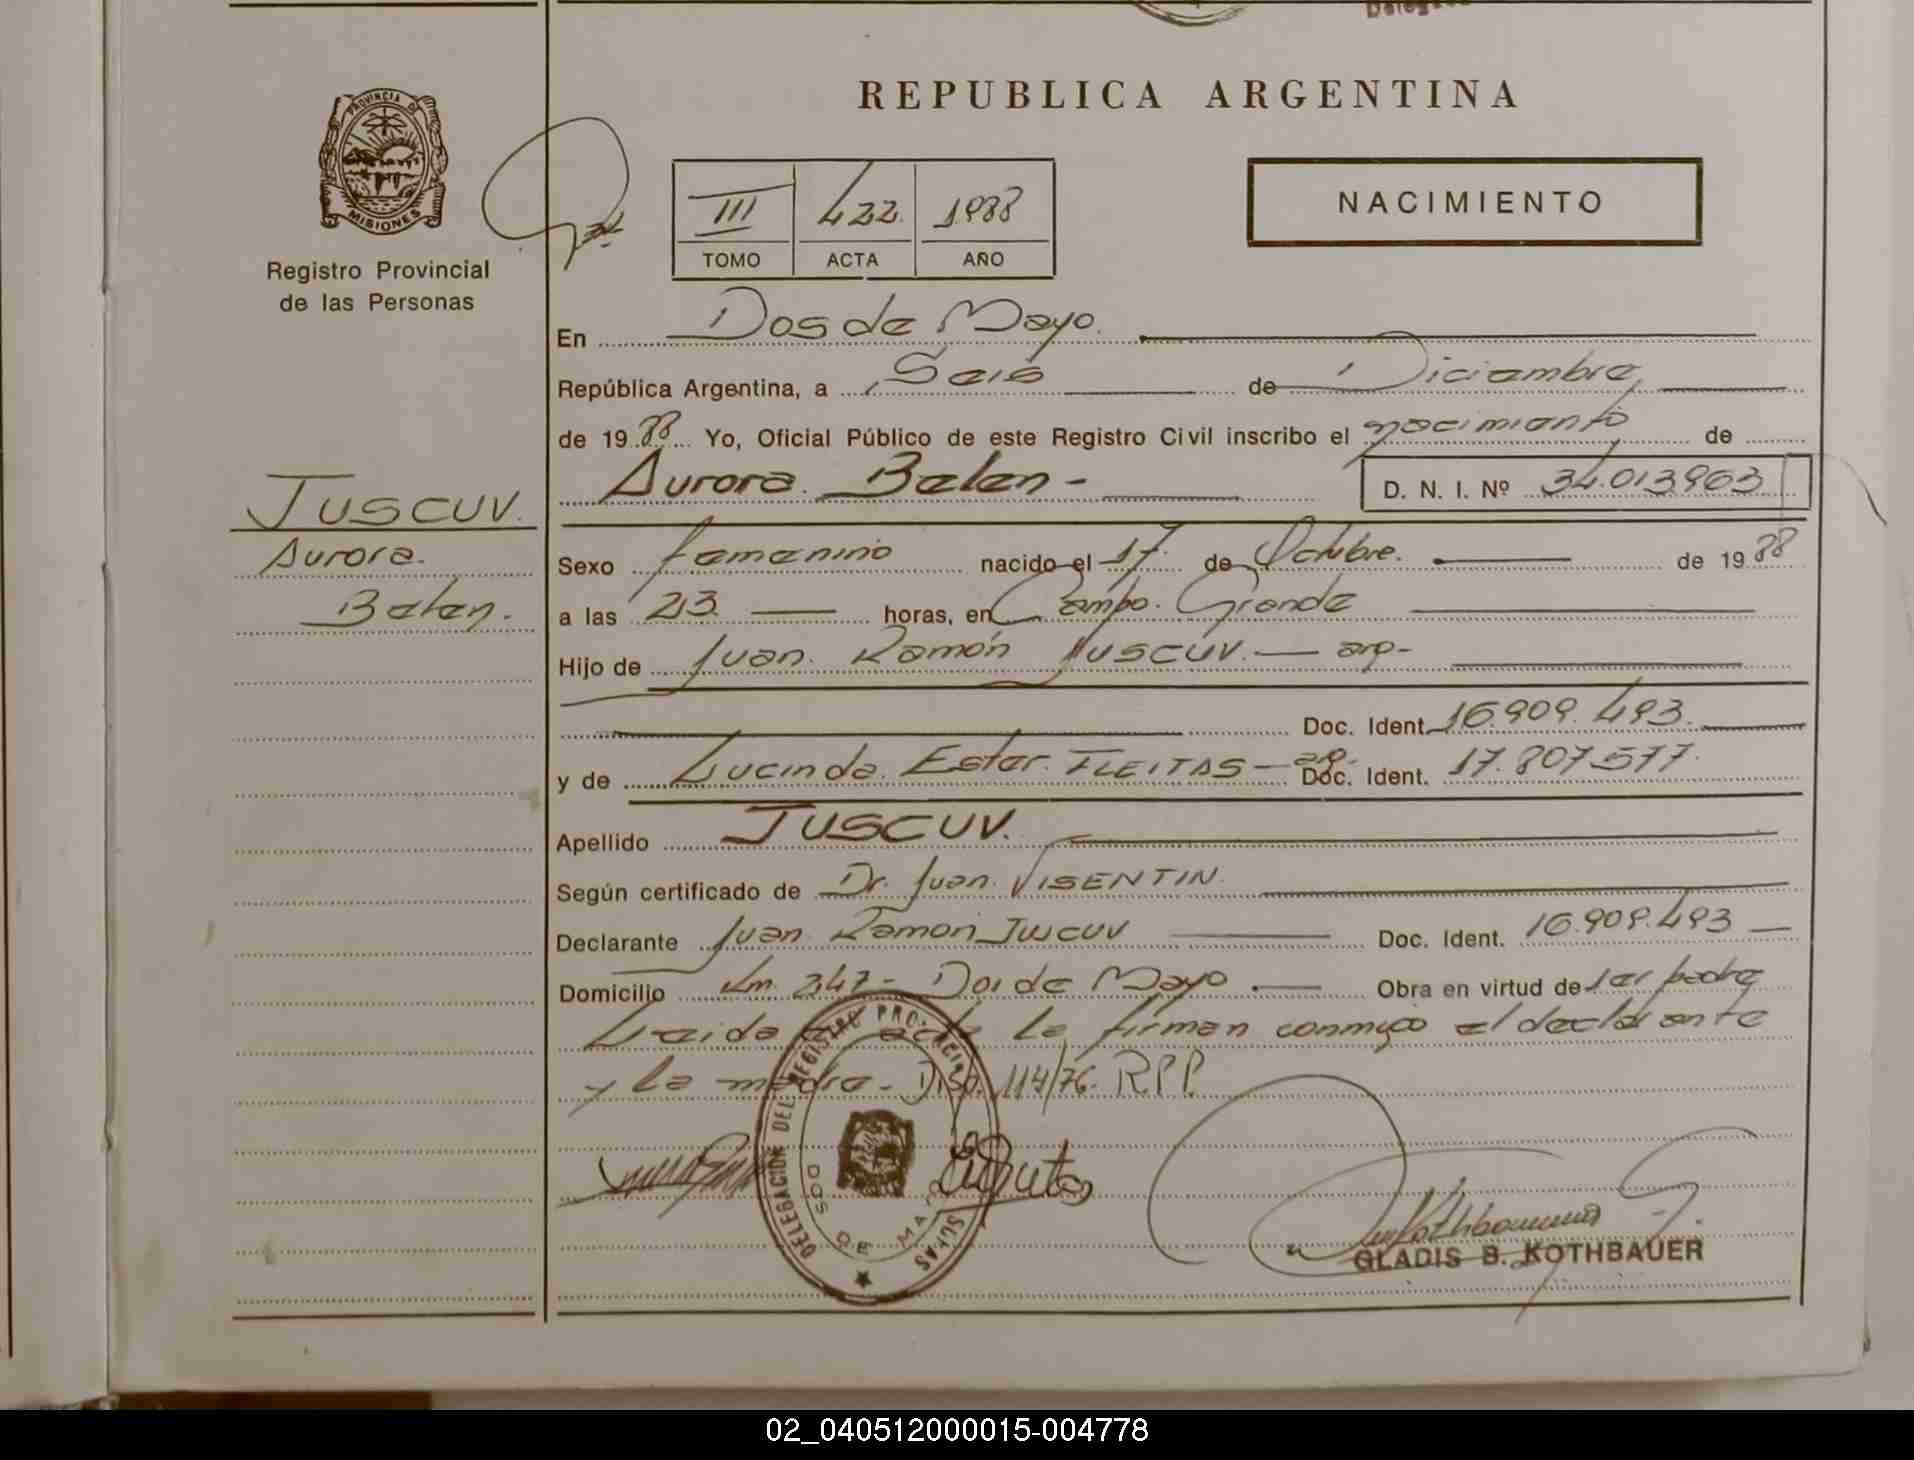 REPUBLICA ARGENTINA
PROVINCIA DE
MISIONES
Registro Provincial
de las Personas
III 422 1988
TOMO ACTA AÑO
NACIMIENTO
En Dos de Mayo.
República Argentina, a Seis de Diciembre
de 1988 Yo, Oficial Público de este Registro Civil inscribo el nacimiento de
Aurora Belen - D. N. I. Nº 34.013.963
JUSCUV.
Aurora
Belen.
Sexo femenino nacido el 17 de Octubre. de 1988
a las 23 horas, en Campo Grande
Hijo de Juan Ramón JUSCUV. — arg-
Doc. Ident. 16.909.493.
y de Lucinda Ester FLEITAS — arg. Doc. Ident. 17.807.577.
Apellido JUSCUV.
Según certificado de Dr. Juan VISENTIN.
Declarante Juan Ramon Juscuv Doc. Ident. 16.909.493
Domicilio Km. 247 - Dos de Mayo Obra en virtud de ser padre
Leida el acta la firman conmigo el declarante
y la madre - Disp. 114/76. R.P.P.
DELEGACION DEL REGISTRO PROVINCIAL
DOS DE MAYO
GLADIS B. KOTHBAUER
02_040512000015-004778